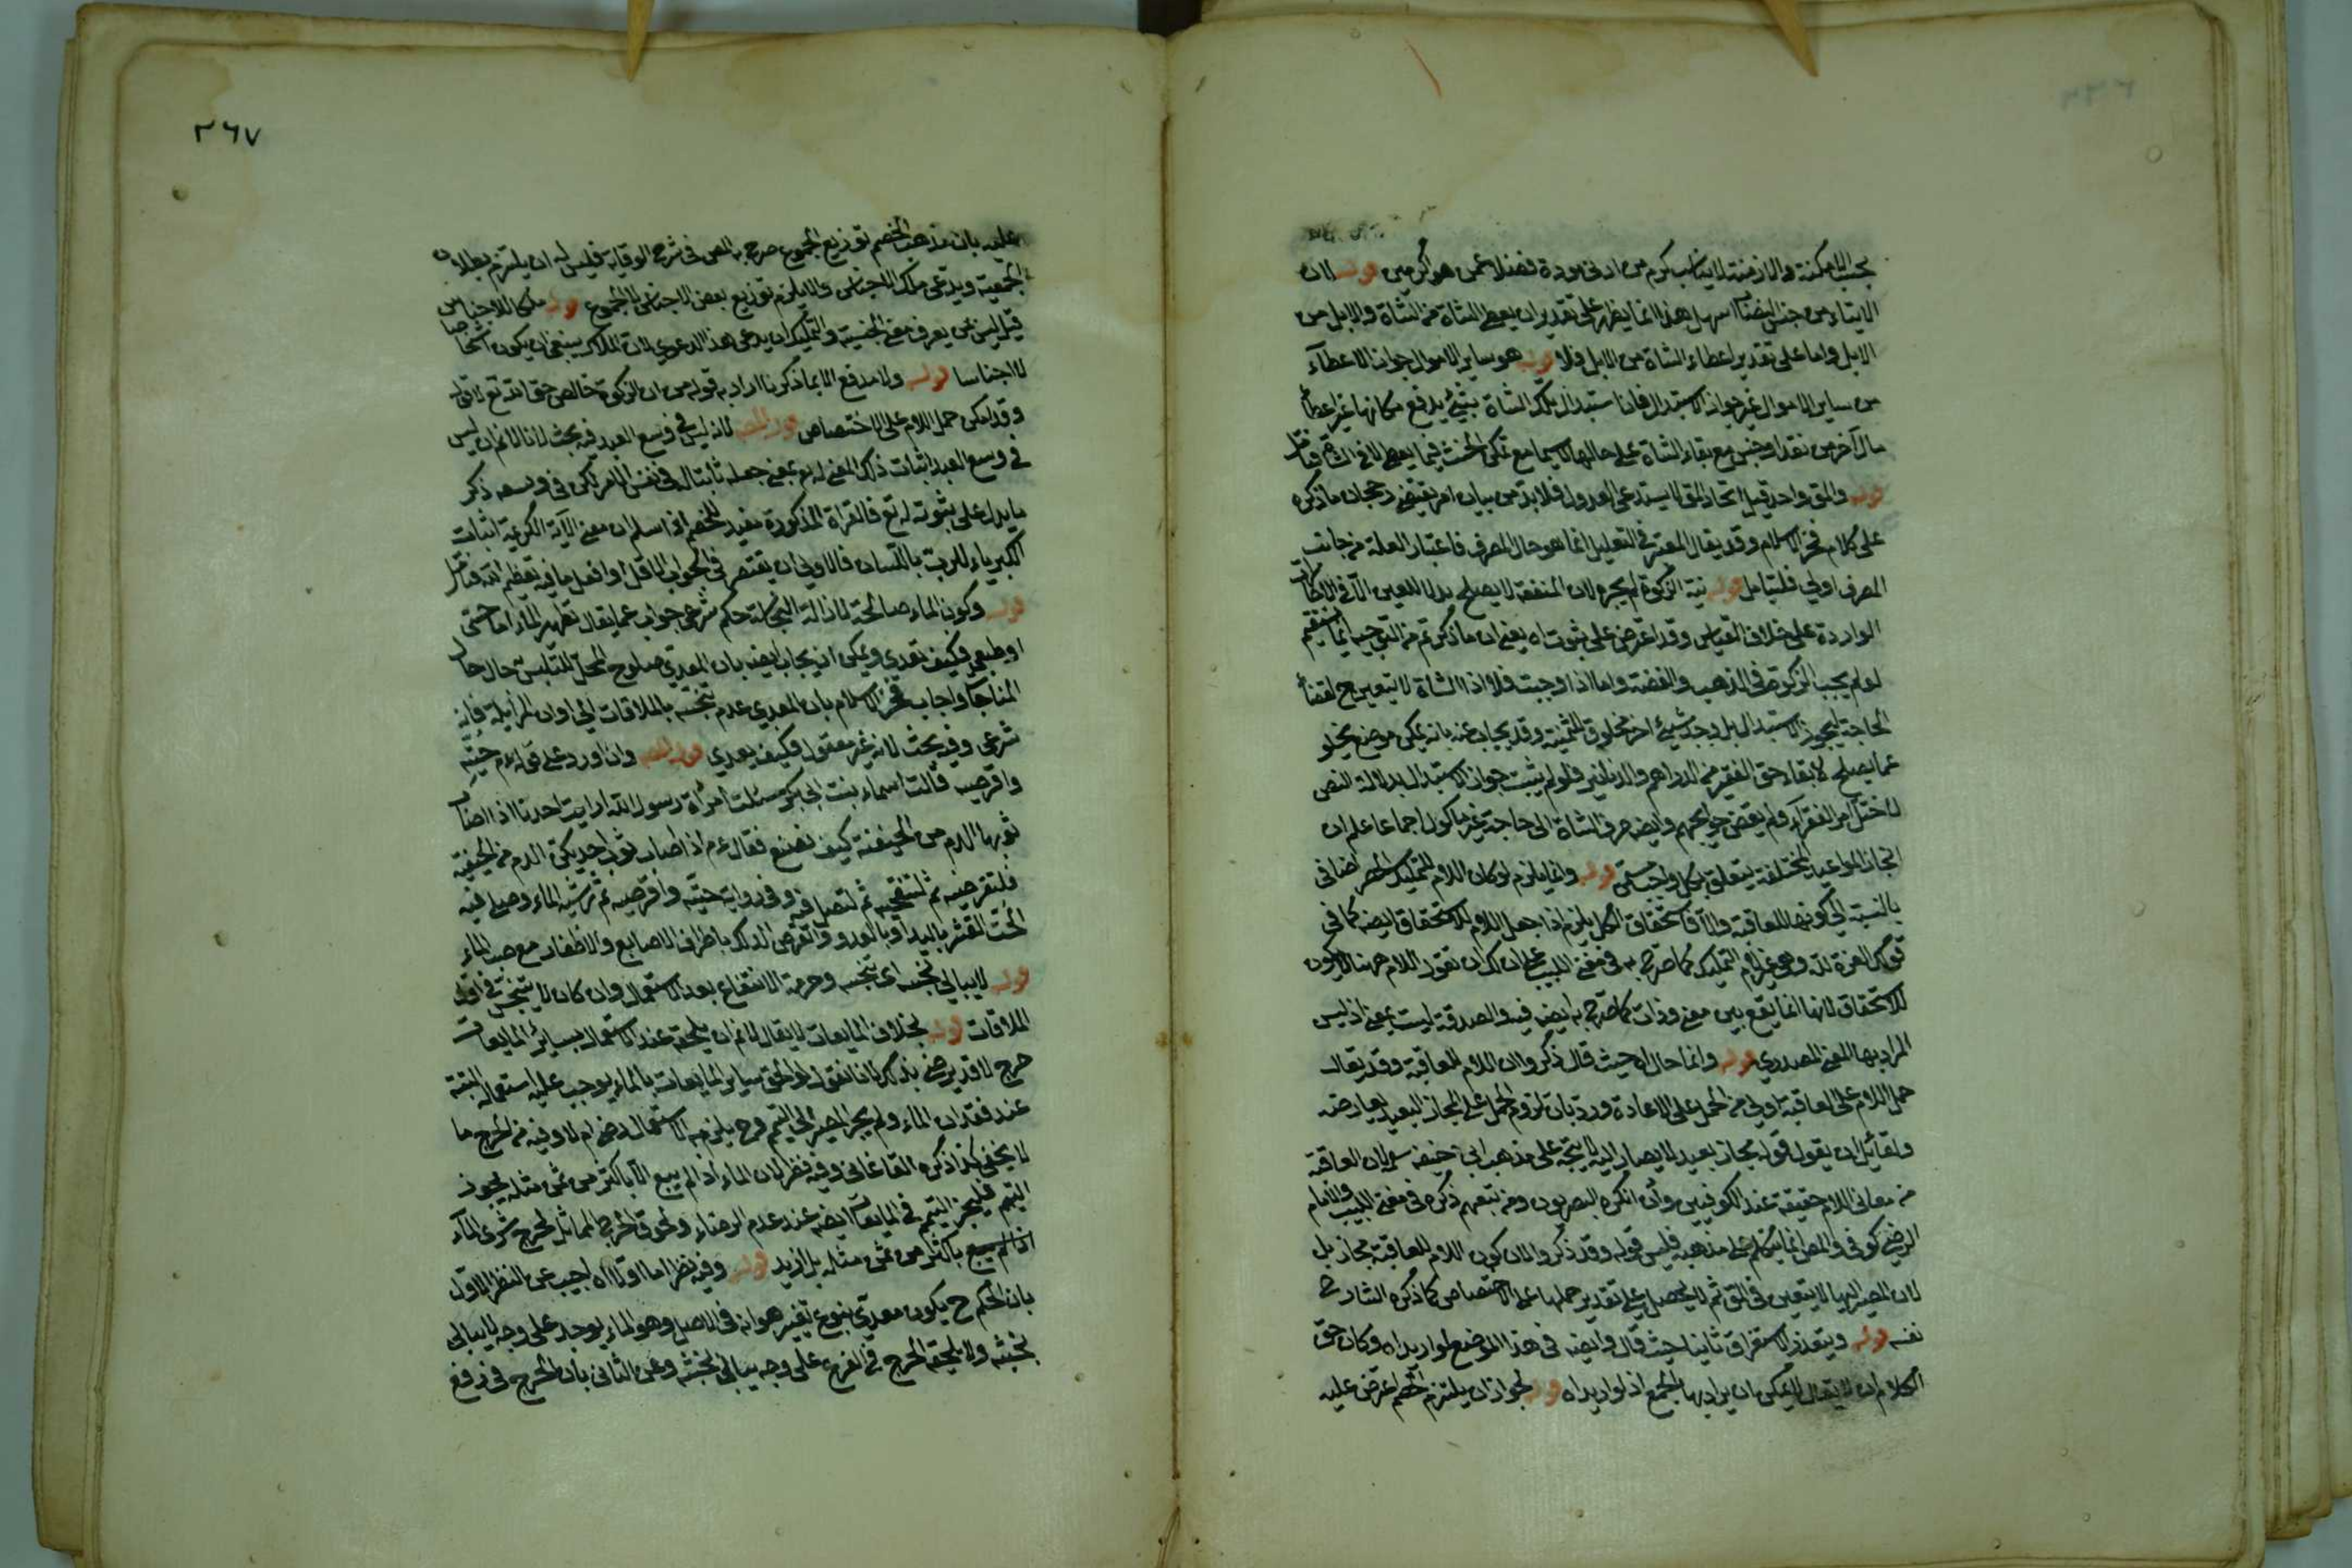 بحسب الامكنة والازمنة لا يناسب كرم من ادنى مودة فضلا عمن هو اكرمين قوله لان
الايتاء من جنس النصاب اسهل هذا انما يظهر على تقدير ان يعطى الشاة من الشاة والابل من
الابل واما على تقدير اعطاء الشاة من الابل فلا قوله هو ساير الاموال جواز الاعطآء
من ساير الاموال غير جواز الاستبدال فان استبدال تلك الشاة بشئ يدفع مكانها غير اعطاء
مال آخر من نقد او جنس مع بقاء الشاة على حالها لا سيما مع
قوله والمق واحد قيل اتحاد المق لا يستدعى العدول فلا بد من بيان امر يقتضى رجحان ما ذكره
على كلام فخر الاسلام وقد يقال المعتبر فى التعليل انما هو حال المصرف فاعتبار العلة من جانب
المصرف اولى فليتامل قوله نية الزكوة لم يجزه لان المنفعة لا يصلح بدلا للعين الا فى
الواردة على خلاف القياس وقد اعترض على ثبوت اه يعنى ان ما ذكرتم من التوجيه انما يستقيم
لو لم يجب الزكوة فى الذهب والفضة واما اذا وجبت فلا اذ الشاة لا يتعين ح لقضاء
الحاجة ليجوز الاستبدال بل وجد شيئ اخر مخلوق للثمنية وقد يجاب عنه بانه يمكن موضع يخلو
عما يصلح لابقاء حق الفقير من الدراهم والدنانير فلو لم يثبت جواز الاستبدال بدلالة النص
لاختل امر الفقرآء ولم يقض حوايجهم وايضه صرف الشاة الى حاجة غير ماكول اجماعا علم ان
انجاز المواعيد المختلفة يتعلق بكل واجب سمى قوله وانما يلزم لو كان اللام للتمليك الحصر اضافى
بالنسبة الى كونها للعاقبة والا فاستحقاق الكل يلزم اذا جعل اللام للاستحقاق ايضه كما فى
قولك العزة لله وهى غير لام التمليك كما صرح به فى مغنى اللبيب على ان لك ان تقول اللام ههنا لا يكون
للاستحقاق لانها انما يقع بين معنى وذات كما صرح به ايضه فيه والصدقة ليست بمعنى اذ ليس
المراد بها المعنى المصدرى قوله وانما حال اه حيث قال ذكروا ان اللام للعاقبة وقد يقال
حمل اللام على العاقبة اولى من الحمل على الاعادة ورد بان لزوم الحمل على المجاز البعيد يعارضه
ولقائل ان يقول قوله مجاز بعيد لا يصار اليه لا يتجه على مذهب ابى حنيفه لان العاقبة
من معانى اللام حقيقة عند الكوفيين وان انكره البصريون ومن تبعهم ذكره فى مغنى اللبيب والامام
الرضى كوفى والمص انما يتكلم على مذهبه فليس قوله وقد ذكروا ان كون اللام للعاقبة مجاز بل
لان المصير اليها لا يتعين فى المق ثم لا يحصل على تقدير حملها على الاختصاص كما ذكره الشارح
نفسه قوله ويتعذر الاستغراق ثانيا حيث قال وايضه فى هذا الموضع لو اريد اه وكان حق
الكلام ان لا يقال لا يمكن ان يراد بها الجمع اذ لو اريد اه قوله لجواز ان يلتزم الخصم اعترض عليه
٣٦٧
عليه بان مذهب الخصم توزيع المجموع صرح به المص فى شرح الوقاية فليس له ان يلتزم بطلان
الجمعية ويدعى ملك الاجناس والا يلزم توزيع بعض الاجناس لا المجموع قوله ملكا للاجناس
قيل ليس من يعرف معنى الجنسية والتمليك ان يدعى هذا الدعوى لان الملاك ينبغى ان يكون اشخاصا
لا اجناسا قوله ولا مدفع الا بما ذكرنا اراد به قوله من ان الزكوة خالص حق الله تع
وقد امكن حمل اللام على الاختصاص قوله المص لانه ليس فى وسع العبد فيه بحث لانا لا نم ان ليس
فى وسع العبد اثبات ذلك المعنى له تع بمعنى جعله ثابتا له فى نفس الامر لكن فى وسعه ذكر
ما يدل على ثبوته له تع فالقراة المذكورة مفيد للخصم اذا سلم ان معنى الآية الكريمة اثبات
الكبرياء للرب باللسان فالاولى ان يقتصر فى الجواب الى اقل او افعل ما فيه تعظيم الله فتامل
قوله وكون الماء صالحة لازالة النجاسة حكم شرعى جواب عما يقال تطهير الماء اما حسى
او طبعى فكيف تعدى ويمكن ان يجاب ايضه بان المعدى صلوح المحل للتلبس حال حال
المناجاة واجاب فخر الاسلام بان المعدى عدم تنجسه بالملاقات الى اوان المزايلة فانه
شرعى وفيه بحث لانه غير معقول فكيف يعدى قوله المص وان اورد على قوله عم حتيه
واقرصيه قالت اسماء بنت ابى بكر سئلت امراة رسول الله ارايت احدينا اذا اصاب
ثوبها الدم من الحيضة كيف تصنع فقال عم اذا اصاب ثوب احديكن الدم من الحيضة
فلتقرصيه ثم لتنضحه ثم لتصل فيه وفى رواية حتيه واقرصيه ثم رشيه بالماء وصلى فيه
الحت القشر باليد او بالعود والقرص الدلك باطراف الاصابع والاظفار مع صب الماء
قوله لا يبالى نجسه اى تنجسه وحرمة الانتفاع بعد الاستعمال وان كان لا يتنجس فى اول
الملاقات قوله بخلاف المايعات لا يقال لا نم ان يلحقه عند الاستعمال بسائر المايعات
حرج لا قد يرضى بذلك لانا نقول لو الحق ساير المايعات بالماء يوجب عليه استعماله البتة
عند فقدان الماء ولم يجز المصير الى التيمم وح يلزمه الاستعمال رضى ام لا وفيه من الحرج ما
لا يخفى كذا ذكره القاغانى وفيه نظر لان الماء اذا لم يبع الا باكثر من ثمن مثله يجوز
التيمم فليجز التيمم فى المايعات ايضه عند عدم الرضاء ولحوق الحرج المماثل لحرج شرى الماء
اذا لم يبع باكثر من ثمن مثله بل ازيد قوله وفيه نظر اما اولا اه اجيب عن النظر الاول
بان الحكم ح يكون معدى بنوع تغيير هو انه فى الاصل وهو الماء يوجد على وجه لا يبالى
بخبثه ولا يلحقه الحرج فى الفرع على وجه يبالى بخبثه وعن الثانى بان الحرج فى رفع